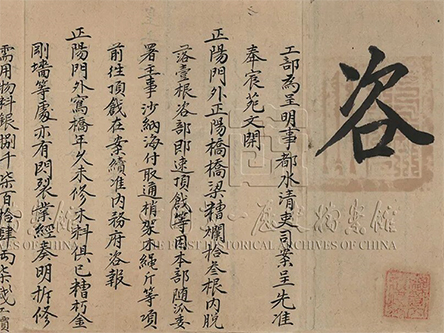 咨
工部為呈明事都水清吏司案呈先准
奉宸苑文開
正陽門外正陽橋橋梁糟爛拾叁根內脫
落壹根咨部即速頂戧等因本部隨派委
署主事沙納海付取通梢架木繩斤等項
前往頂戧在案續准內務府咨報
正陽門外窵橋年久未修木料俱已糟朽金
剛墻等處亦有閃裂業經奏明拆修
需用物料銀捌千柒百拾肆兩柒錢工
第一歷史檔案館
THE FIRST HISTORICAL ARCHIVES OF CHINA